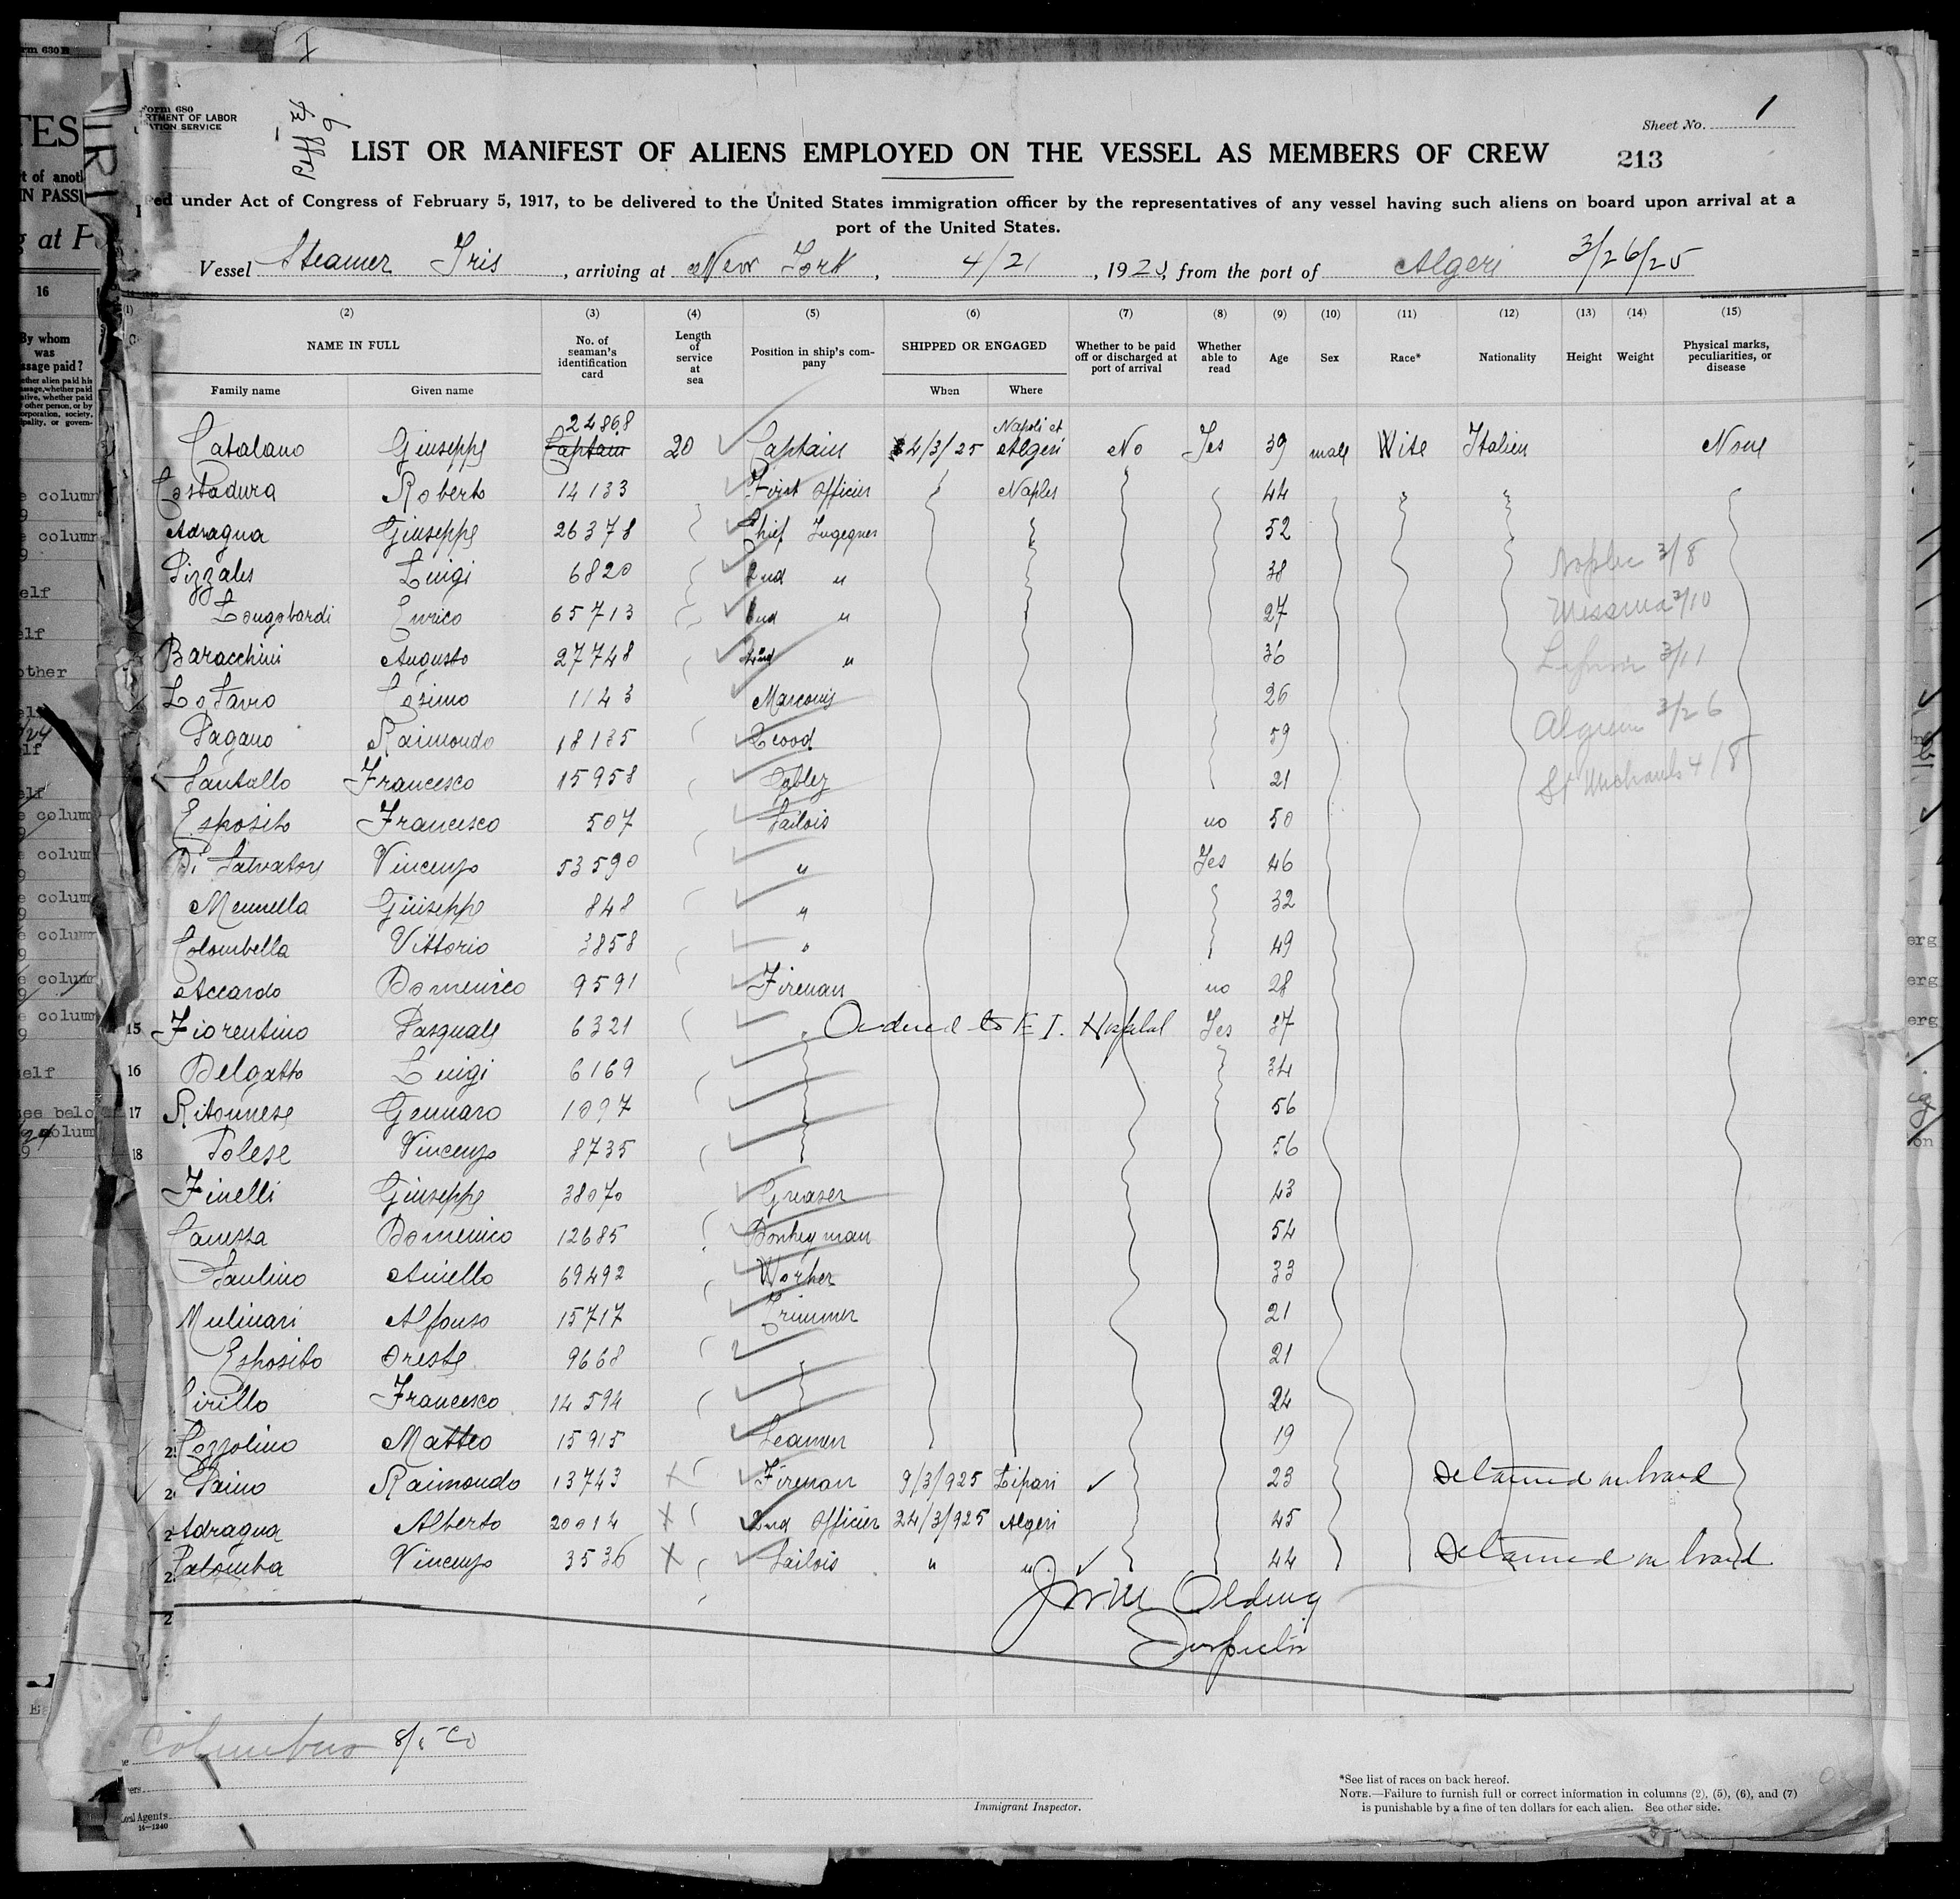 Form 680
Sheet No. 1
LIST OR MANIFEST OF ALIENS EMPLOYED ON THE VESSEL AS MEMBERS OF CREW
213
under Act of Congress of February 5, 1917, to be delivered to the United States immigration officer by the representatives of any vessel having such aliens on board upon arrival at a
port of the United States.
Vessel Steamer Iris, arriving at New York, 4/21, 1925, from the port of Algeri 3/26/25
(1) (2) (3) (4) (5) (6) (7) (8) (9) (10) (11) (12) (13) (14) (15)
NAME IN FULL No. of seaman's identification card Length of service at sea Position in ship's company SHIPPED OR ENGAGED Whether to be paid off or discharged at port of arrival Whether able to read Age Sex Race* Nationality Height Weight Physical marks, peculiarities, or disease
Family name Given name When Where
Catalano Giuseppe 24868 Captain 20 Captain 4/3/25 Napoli et Algeri No Yes 39 male Wite Italien None
Costadura Roberto 14133 First Officier Naples 44
Adragua Giuseppe 26378 Chief Ingegner 52
Pizzales Luigi 6820 2nd " 38
Longobardi Enrico 65713 2nd " 27
Baracchini Augusto 27748 " 36
Lo Savio Cosimo 1143 Marconis 26
Pagano Raimondo 18135 59
Santallo Francesco 15958 21
Esposito Francesco 507 Sailois no 50
Di Salvatore Vincenzo 53590 " Yes 46
Mennella Giuseppe 848 " 32
Colombella Vittorio 3858 " 49
Accardo Domenico 9591 Fireman no 28
15 Fiorentino Pasquale 6321 Ordered to E I. Hospital Yes 37
16 Delgatto Luigi 6169 34
17 Ritonnese Gennaro 1097 56
18 Polese Vincenzo 8735 56
Finelli Giuseppe 38070 Greaser 43
Canessa Domenico 12685 Donkeyman 54
Paulino Aniello 69492 Worker 33
Mulinari Alfonso 15717 Trimmer 21
Esposito Oreste 9668 21
Cirillo Francesco 14594 24
Cozzolino Matteo 15915 Seamen 19
Paino Raimondo 13743 Fireman 9/3/925 Lipari 23 Detained on board
Adragua Alberto 20014 2nd Officier 24/3/925 Algeri 45
Palomba Vincenzo 3536 Sailois " " 44 Detained on board
Naples 3/8
Messina 3/10
3/11
3/26
St Michaels 4/8
Olding
Inspector
Columbus
Immigrant Inspector.
*See list of races on back hereof.
NOTE.—Failure to furnish full or correct information in columns (2), (5), (6), and (7)
is punishable by a fine of ten dollars for each alien. See other side.
14—1240